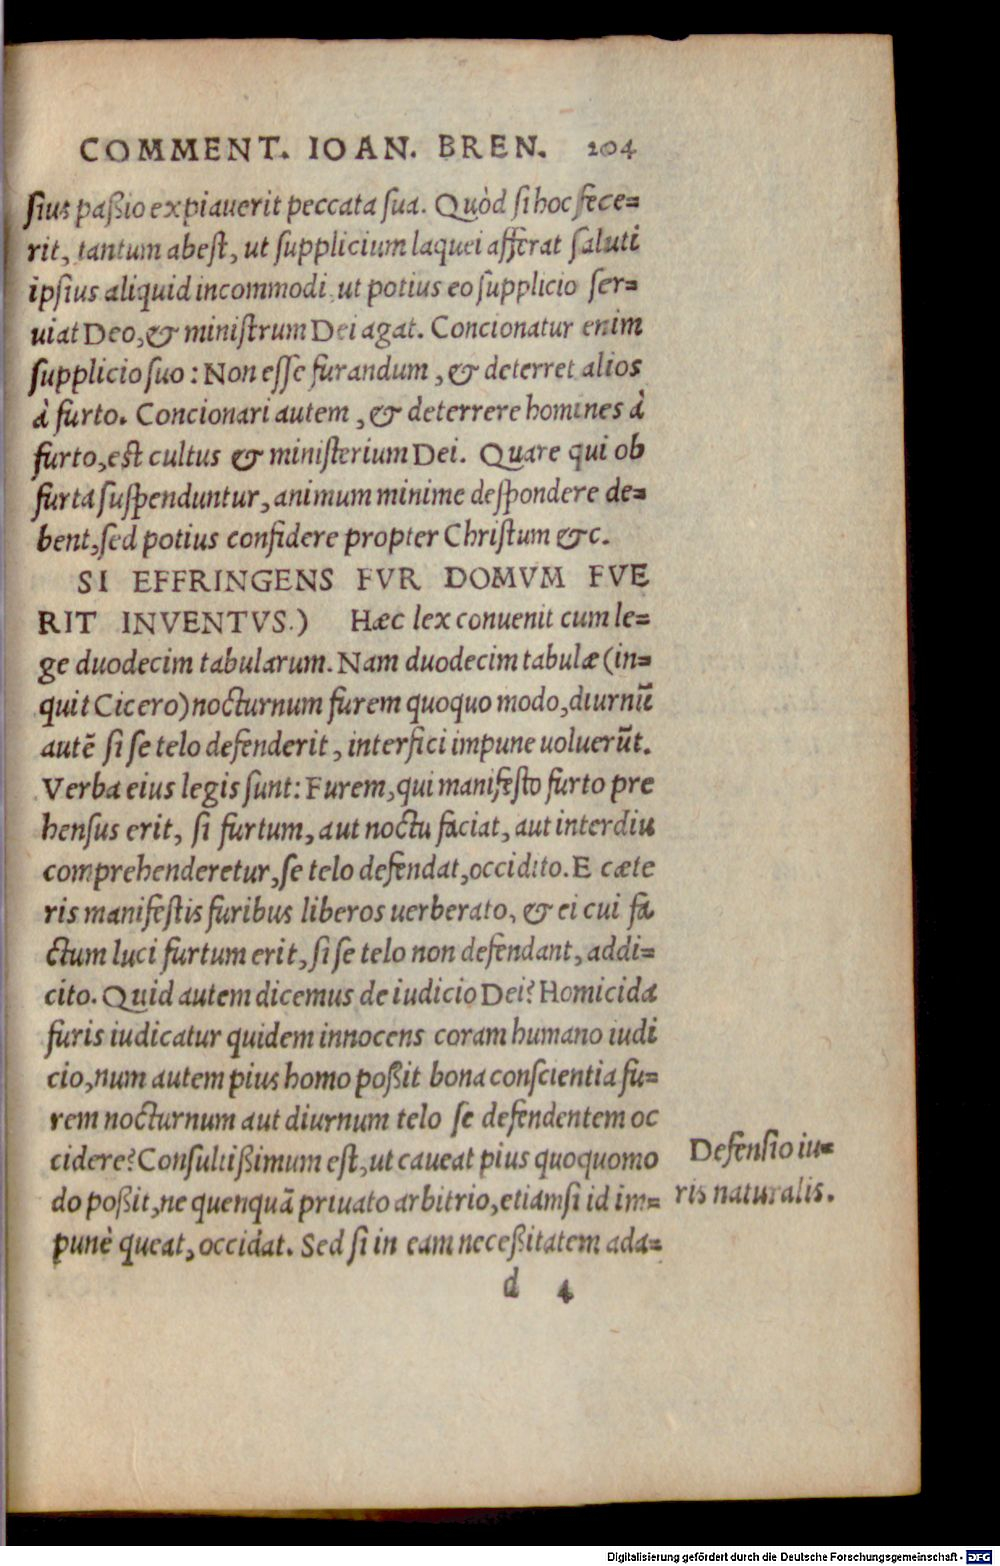 COMMENT. IOAN. BREN. 204
sius paßio expiauerit peccata sua. Quòd si hoc fece=
rit, tantum abest, ut supplicium laquei afferat saluti
ipsius aliquid incommodi, ut potius eo supplicio ser=
uiat Deo, & ministrum Dei agat. Concionatur enim
supplicio suo: Non esse furandum, & deterret alios
à furto. Concionari autem, & deterrere homines à
furto, est cultus & ministerium Dei. Quare qui ob
furta suspenduntur, animum minime despondere de=
bent, sed potius confidere propter Christum &c.
SI EFFRINGENS FVR DOMVM FVE
RIT INVENTVS.) Hæc lex conuenit cum le=
ge duodecim tabularum. Nam duodecim tabulæ (in=
quit Cicero) nocturnum furem quoquo modo, diurnū
autē si se telo defenderit, interfici impune uoluerūt.
Verba eius legis sunt: Furem, qui manifesto furto pre
hensus erit, si furtum, aut noctu faciat, aut interdiu
comprehenderetur, se telo defendat, occidito. E cæte
ris manifestis furibus liberos uerberato, & ei cui fa
ctum luci furtum erit, si se telo non defendant, addi=
cito. Quid autem dicemus de iudicio Dei? Homicida
furis iudicatur quidem innocens coram humano iudi
cio, num autem pius homo poßit bona conscientia fu=
rem nocturnum aut diurnum telo se defendentem oc
cidere? Consultißimum est, ut caueat pius quoquomo
do poßit, ne quenquā priuato arbitrio, etiamsi id im=
punè queat, occidat. Sed si in eam neceßitatem ada=
d 4
Defensio iu=
ris naturalis.
Digitalisierung gefördert durch die Deutsche Forschungsgemeinschaft - DFG